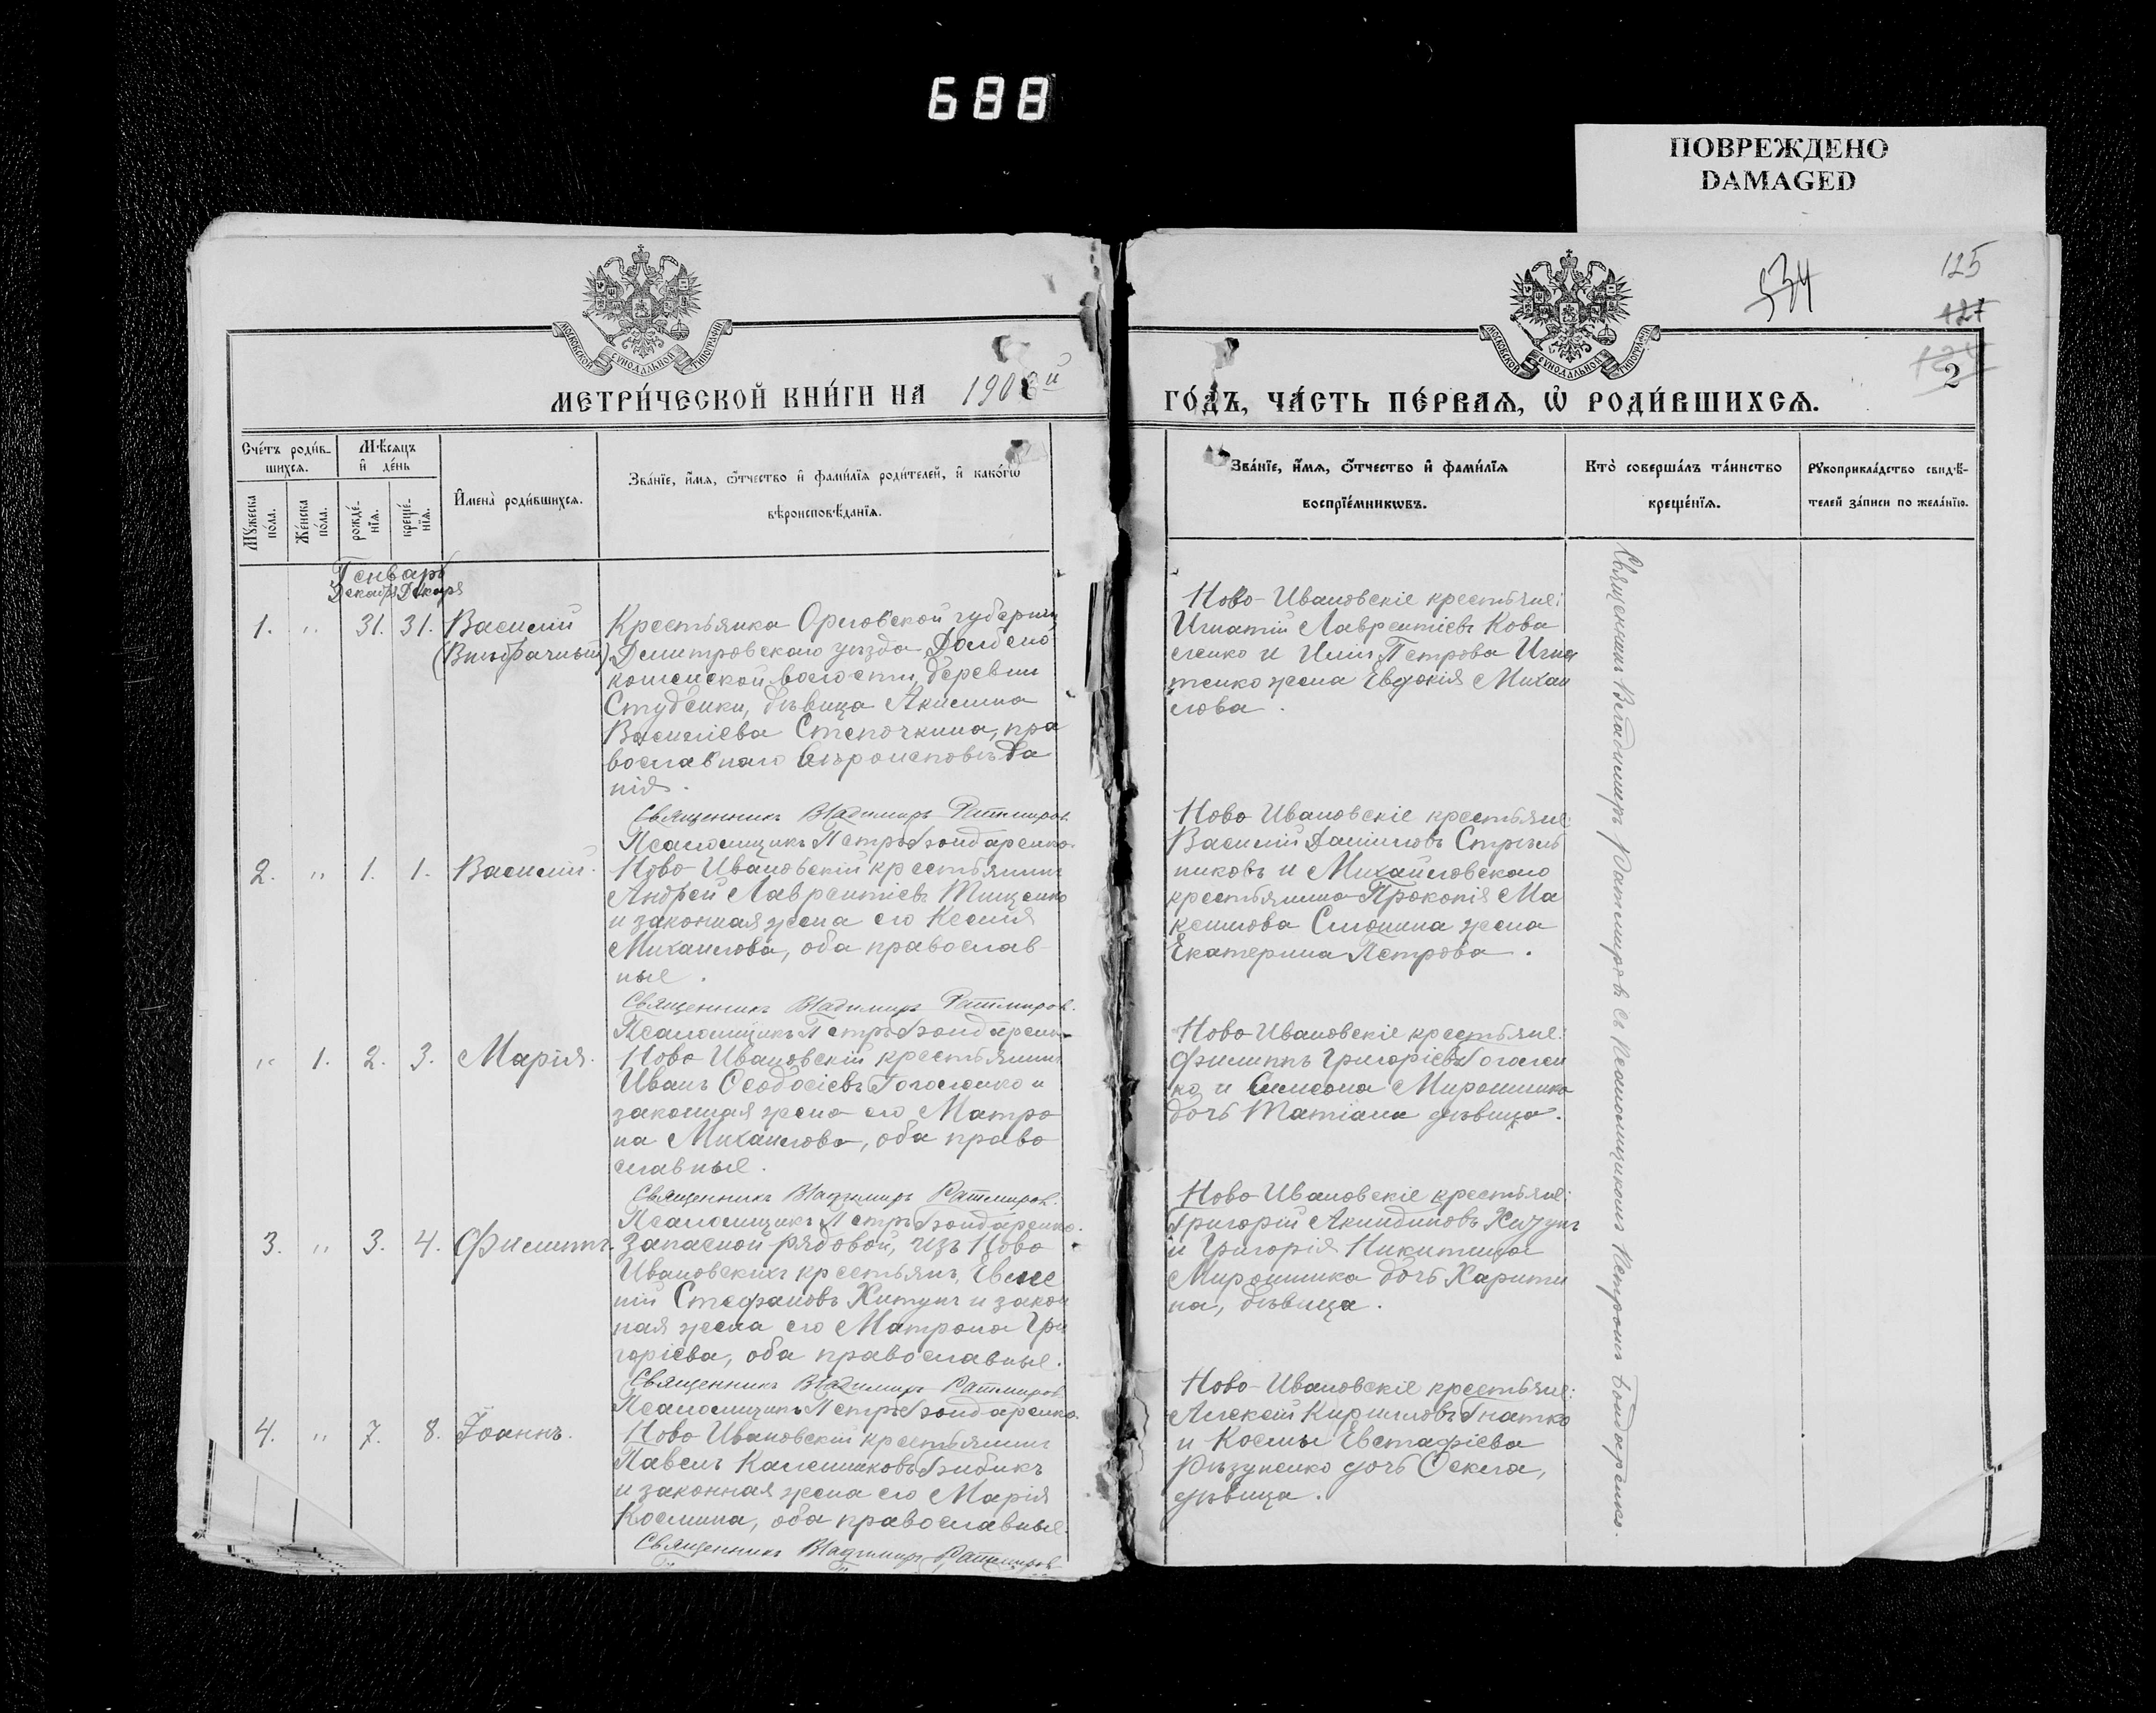 688
ПОВРЕЖДЕНО
DAMAGED
534
125
2
МОСКОВСКОЙ СУНОДАЛЬНОЙ ТИПОГРАФІИ
МОСКОВСКОЙ СУНОДАЛЬНОЙ ТИПОГРАФІИ
МЕТРИ́ЧЕСКОЙ КНИ́ГИ НА 1908й
ГО́ДЪ, ЧА́СТЬ ПЕ́РВАЯ, Ѡ҆ РОДИ́ВШИХСЯ.
Сче́тъ роди́в-
шихся.
Мꙋ́жеска по́ла.
Же́нска по́ла.
Мѣ́сяцъ
и҆ де́нь
рожде́-
нїя.
креще́-
нїя.
И҆мена̀ роди́вшихся.
Зва́нїе, и҆́мя, ѻ҆́тчество и҆ фами́лїя роди́телей, и҆ како́гѡ
вѣроисповѣ́данїя.
Зва́нїе, и҆́мя, ѻ҆́тчество и҆ фами́лїя
воспрїе́мникѡвъ.
Кто̀ соверша́лъ та́инство
креще́нїя.
Рꙋкоприкла́дство свидѣ́-
телей за́писи по жела́нїю.
Генварь
1. " 31. 31. Василій
(Внѣбрачный)
Крестьянка Орловской губерніи,
Дмитровскаго уѣзда
волости, деревни
Студенки, дѣвица Акилина
Василіева Степочкина, пра
вославнаго вѣроисповѣда
нія.
Священникъ Владимиръ Ратмировъ.
Псаломщикъ Петръ Бондаренко.
Ново-Ивановскіе крестьяне:
Игнатій Лаврентіевъ Кова
ленко и Иліи Петрова Игна
тенко жена Евдокія Михаи
лова.
2. " 1. 1. Василій.
Ново Ивановскій крестьянинъ
Андрей Лаврентіевъ Тищенко
и законная жена его Ксенія
Михаилова, оба православ-
ные.
Священникъ Владимиръ Ратмировъ.
Псаломщикъ Петръ Бондаренко
Ново Ивановскіе крестьяне:
Василій Даніиловъ Стрѣль
никовъ и Михайловскаго
крестьянина Прокопія Ма
ксимова жена
Екатерина Петрова.
" 1. 2. 3. Марія.
Ново Ивановскій крестьянинъ
Иванъ Ѳеодосіевъ Гоголенко и
законная жена его Матро
на Михаилова, оба право
славные.
Священникъ Владимиръ Ратмировъ.
Псаломщикъ Петръ Бондаренко.
Ново Ивановскіе крестьяне:
Филиппъ Григоріевъ Гоголен
ко и Симеона Мирошника
дочь Татіана дѣвица.
3. " 3. 4. Филиппъ.
Запасной рядовой, изъ Ново
Ивановскихъ крестьянъ, Евсе
ній Стефановъ и закон
ная жена его Матрона Гри
горіева, оба православные.
Священникъ Владимиръ Ратмировъ
Псаломщикъ Петръ Бондаренко.
Ново Ивановскіе крестьяне:
Григорій Акиндиновъ
и Григорія Никитина
Мирошника дочь Харити
на, дѣвица.
4. " 7. 8. Іоаннъ.
Ново Ивановскій крестьянинъ
Павелъ Бибикъ
и законная жена его Марія
Космина, оба православные.
Священникъ Владимиръ Ратмировъ
Ново-Ивановскіе крестьяне:
Алексій Кирилловъ Гнатко
и Космы Евстафіева
дочь Ѳекла,
дѣвица.
Священникъ Владимиръ Ратмировъ съ Псаломщикомъ Петромъ Бондаренко.